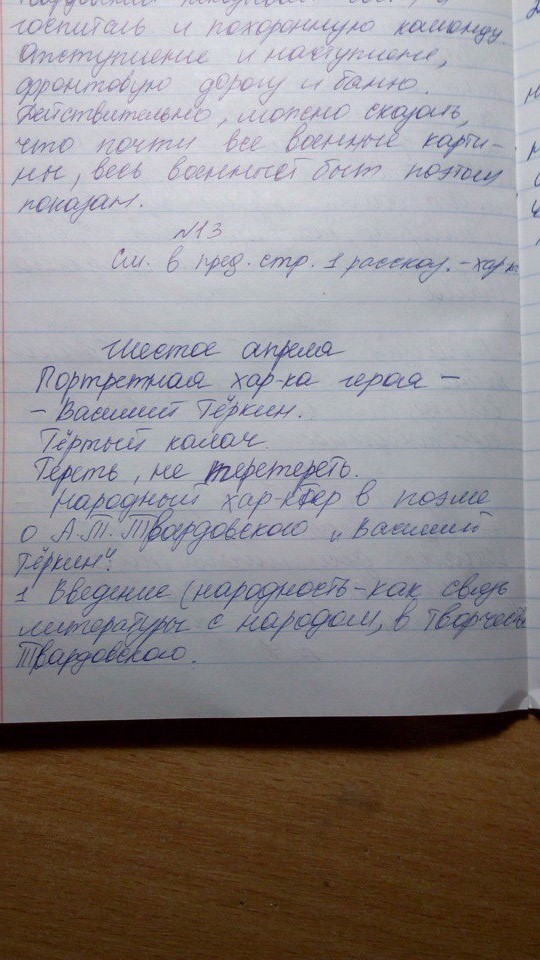 госпиталь и похоронную команду.
Отступление и наступление,
фронтовую дорогу и баню.
Действительно, можно сказать,
что почти все военные карти-
ны, весь военный быт поэтом
показан.
N13
См. в пред. стр. 1 рассказ. - хар-ка
Шестое апреля
Портретная хар-ка героя -
- Василий Тёркин.
Тёртый калач.
Тереть, не перетереть.
Народный хар-ктер в поэме
о А.Т. Твардовского „Василий
Тёркин".
1 Введение (народность - как связь
литературы с народом, в творчестве
Твардовского.